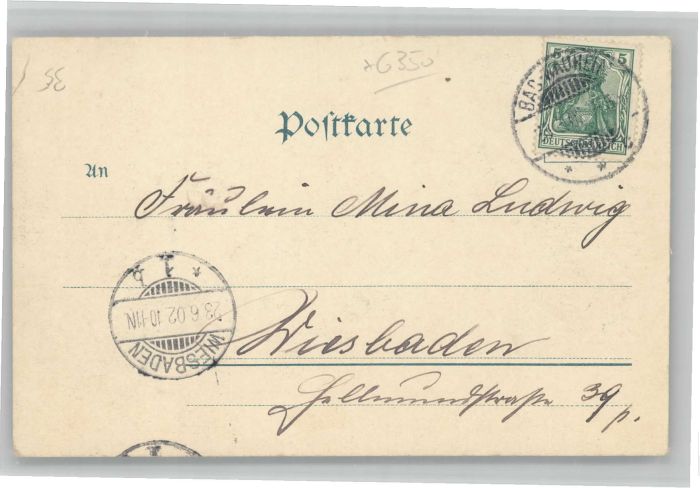 6350
5 5
BAD-NAUHEIM
DEUTSCHES REICH
Postkarte
An
Fräulein Mina Ludwig
Wiesbaden
Hellmundstraße 39 p.
WIESBADEN
23.6.02.10-11N.
* 1 b
1